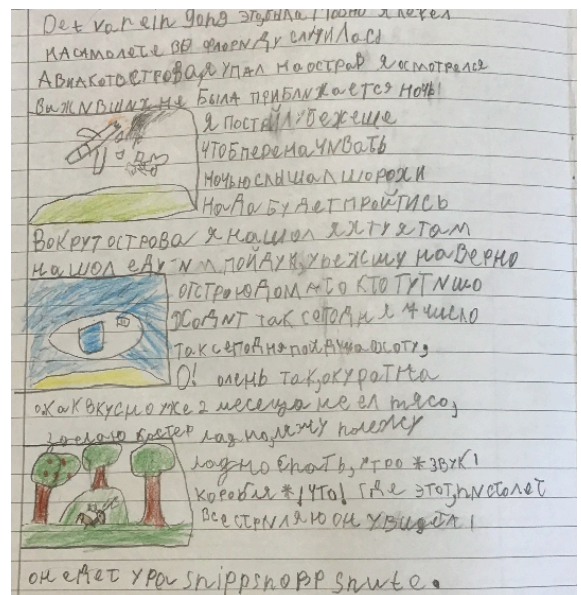 Det var ein gong это была я летел
на самолёте во Флориду случилась
Авиакотострова я упал на остров я осмотрелся
выживших не была приближается ночь!
я постройл убежеще
чтоб переначивать
ночью слышал шорохи
нада будет пройтись
Вокруг острова я нашол яхту я там
нашол еду и пойду к убежшу наверно
отстрою дом а то кто тут ишо
ходит так сегодня 7 число
так сегодня пойду на охоту,
О! олень так, окуратна
ожак вкусно уже 2 месеца не ел мясо,
зделаю костер ладно, ляжу полежу
ладно спать, утро *звук
коробля * что где этот, пистолет
все стриляю он увидел
он едет ура snippsnapp snute.